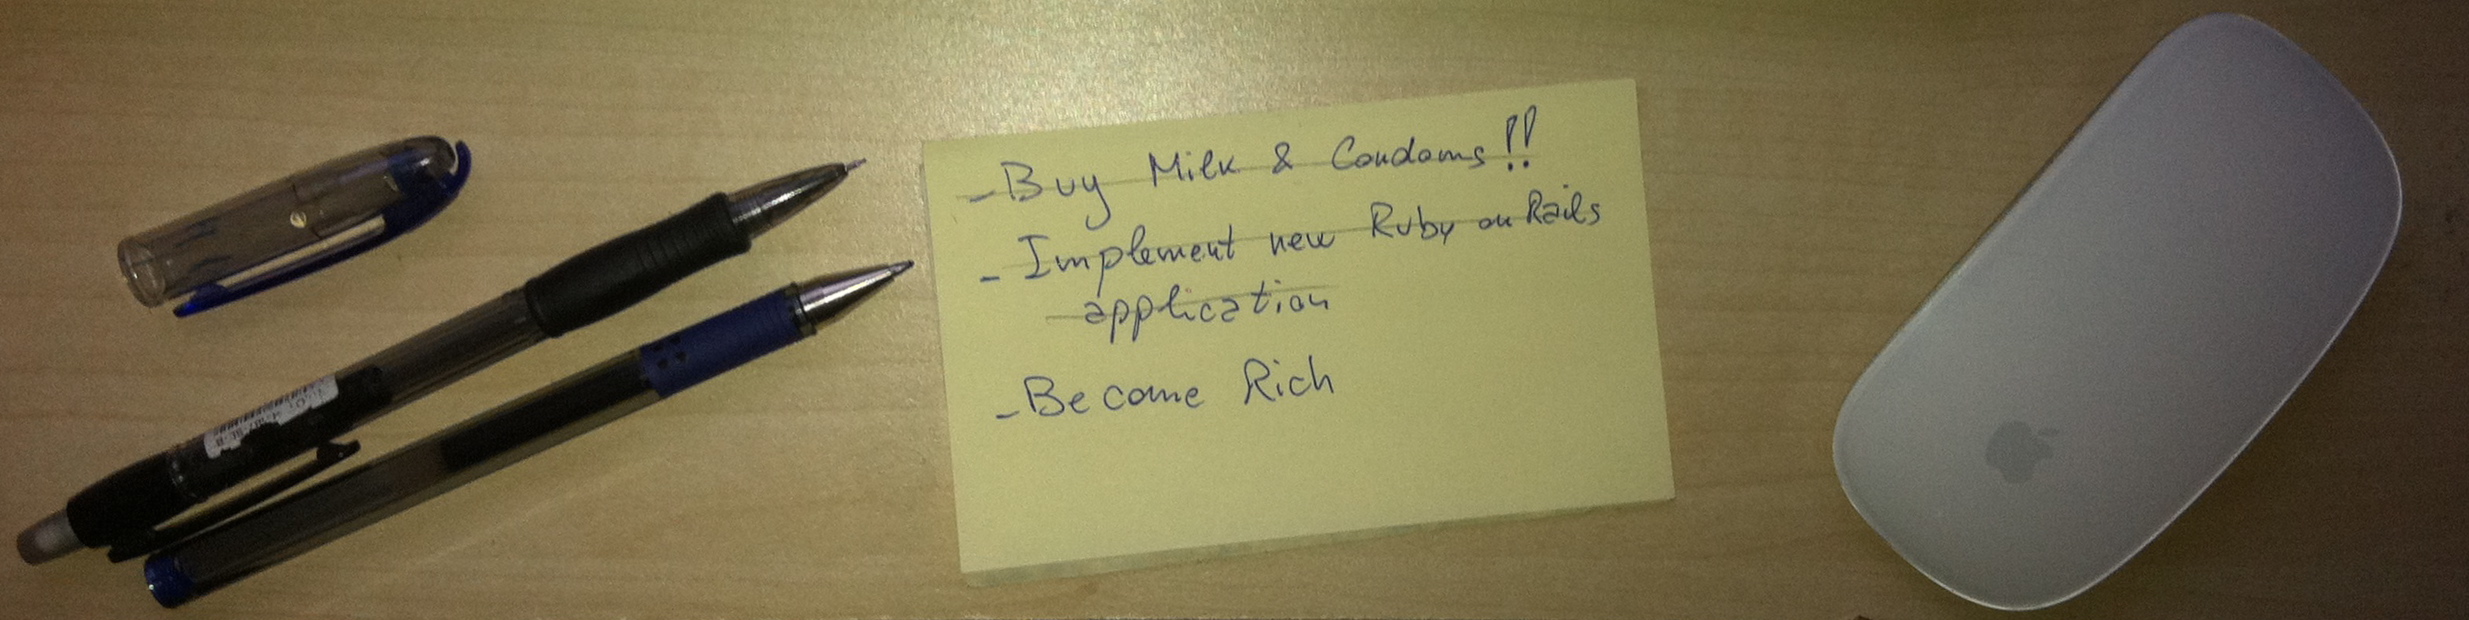 - Buy Milk & Condoms!!
- Implement new Ruby on Rails
application
- Become Rich